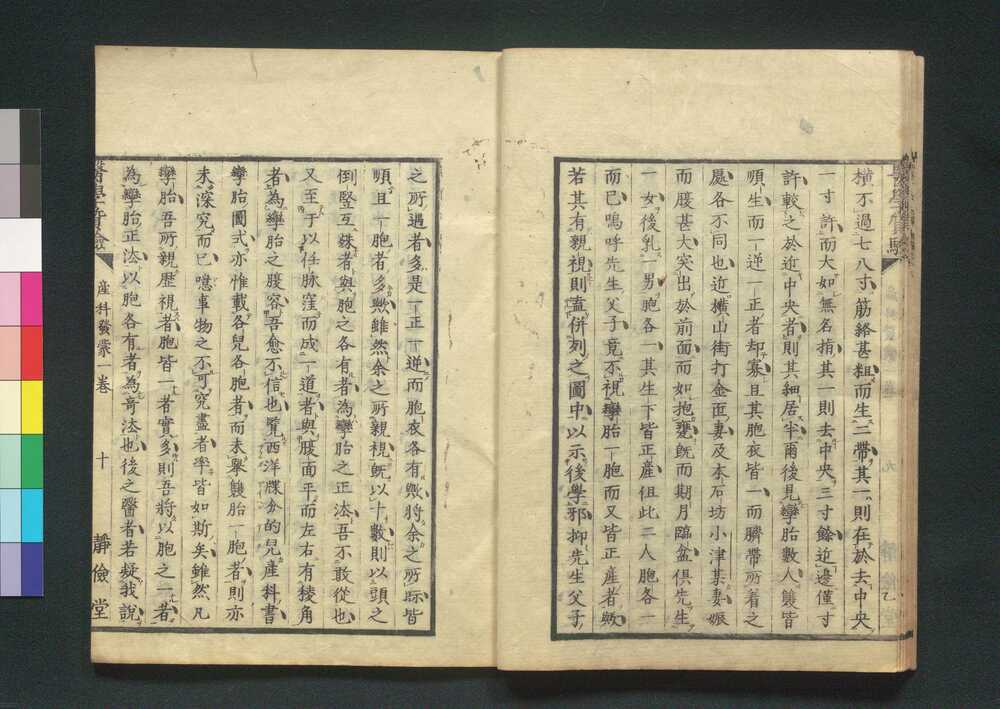 橫不過七八寸筋絡甚細而生二帶其一則在於去中央
一寸許而大如無名指其一則去中央三寸餘近邊僅寸
許較之於近中央者則其細居半爾後見孿胎數人雙皆
順生而一逆一正者却寡且其胞衣皆一而臍帶所着之
處各不同也近橫山街打金匠妻及本石坊小津某妻娠
而腹甚大突出於前面而如抱甕旣而期月臨盆俱先生
一女後乳一男胞各一其生下皆正產但此二人胞各一
而已嗚呼先生父子竟不視孿胎一胞而又皆正產者歟
若其有親視則盍併列之圖中以示後學邪抑先生父子
之所遇者多是一正一逆而胞衣各有歟將余之所際皆
順且一胞者多歟雖然余之所親視旣以十數則以頭之
倒豎互錯者與胞之各有者為孿胎之正法吾不敢從也
又至于以任脉窪而成一道者與腹面平而左右有稜角
者為孿胎之腹容吾愈不信也覽西洋牒分的兒產科書
孿胎圖式亦惟載各兒各胞者而未舉雙胎一胞者則亦
未深究而已噫事物之不可究盡者率皆如斯矣雖然凡
孿胎吾所親歷視者胞皆一者實多則吾將以胞之一者
為孿胎正法以胞各有者為奇法也後之醫者若疑我說
產科發蒙一卷
十
靜儉堂